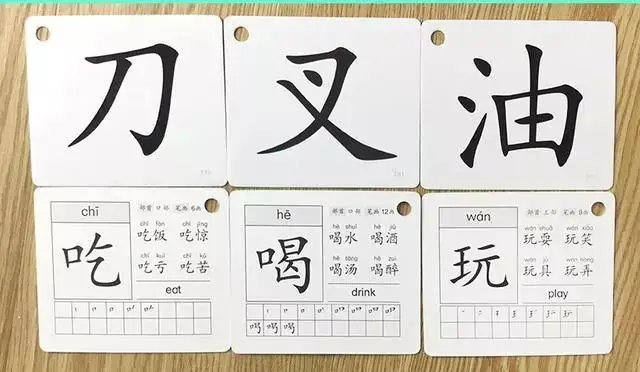 刀
叉
油
chī
部首 口部 笔画 6画
chī fàn chī jīng
吃饭 吃惊
吃
chī kuī chī kǔ
吃亏 吃苦
eat
hē
部首 口部 笔画 12画
hē shuǐ hē jiǔ
喝水 喝酒
喝
hē tāng hē zuì
喝汤 喝醉
drink
wán
部首 王部 笔画 8画
wán shuǎ wán xiào
玩耍 玩笑
玩
wán jù wán nòng
玩具 玩弄
play